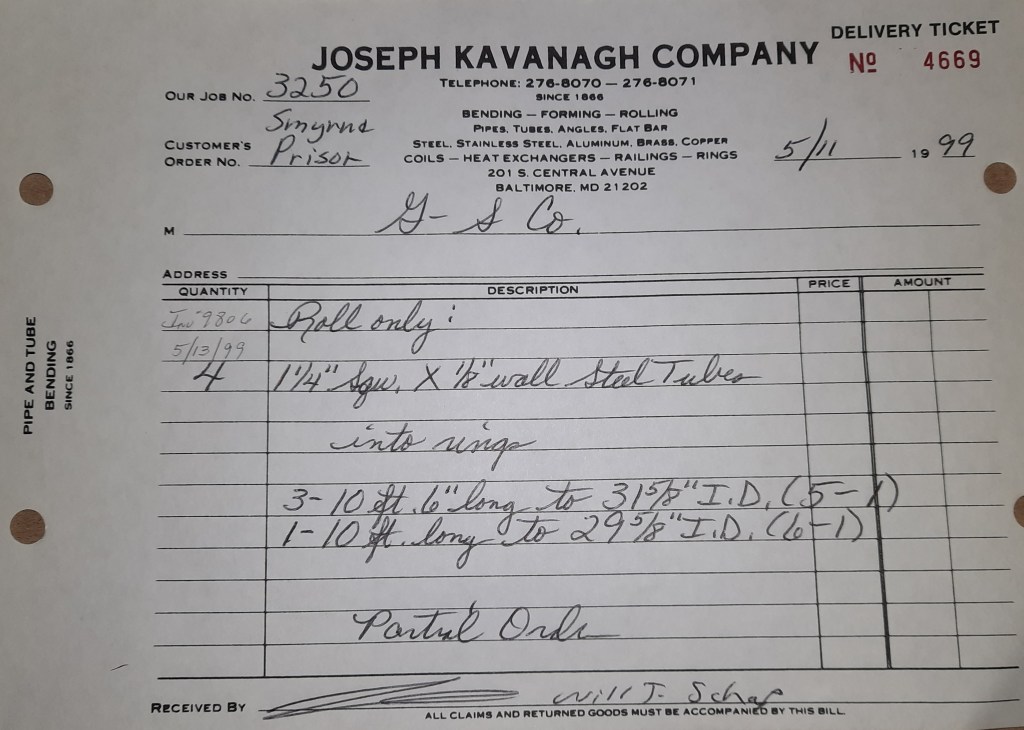 DELIVERY TICKET
JOSEPH KAVANAGH COMPANY
Nº 4669
TELEPHONE: 276-8070 — 276-8071
SINCE 1866
OUR JOB NO. 3250
BENDING — FORMING — ROLLING
PIPES, TUBES, ANGLES, FLAT BAR
Smyrna
CUSTOMER'S ORDER NO. Prison
STEEL, STAINLESS STEEL, ALUMINUM, BRASS, COPPER
COILS — HEAT EXCHANGERS — RAILINGS — RINGS
5/11 1999
201 S. CENTRAL AVENUE
BALTIMORE, MD 21202
M G-S Co.
ADDRESS
QUANTITY DESCRIPTION PRICE AMOUNT
Inv 9806 Roll only:
5/13/99
4 1 1/4" Squ. X 1/8" wall Steel Tubes
into rings
3-10 ft. 6" long to 31 5/8" I.D. (5-1)
1-10 ft. long to 29 5/8" I.D. (6-1)
Partial Order
RECEIVED BY Will J. Schaf
ALL CLAIMS AND RETURNED GOODS MUST BE ACCOMPANIED BY THIS BILL
PIPE AND TUBE
BENDING
SINCE 1866